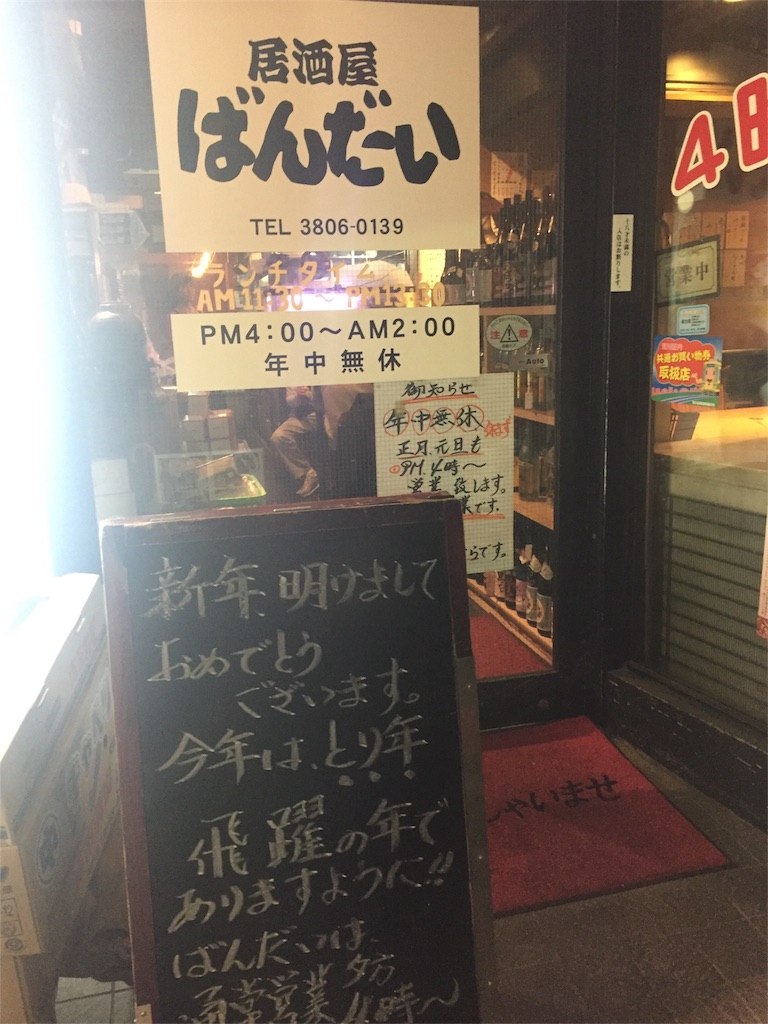 居酒屋
ばんだーい
TEL 3806-0139
ランチタイム
AM11:30～PM13:30
PM4:00～AM2:00
年中無休
注意
Auto
御知らせ
年中無休
正月、元旦も
PM.4時～
営業致します。
業です.
らです。
営業中
共通お買い物券
取扱店
新年、明けまして
おめでとう
ございます。
今年は、とり年
飛躍の年で
ありますように!!
ばんだいは、
通常営業 夕方
4時～
ゃいませ